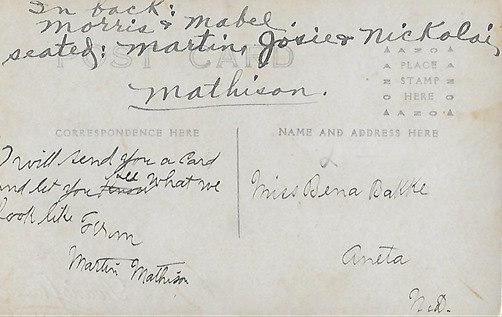 In back:
Morris & Mabel.
seated: Martin, Josie & Nickolai,
Mathison.
POST CARD
AZO
PLACE
STAMP
HERE
AZO
CORRESPONDENCE HERE
NAME AND ADDRESS HERE
I will send you a card
and let you see what we
look like From
Martin Mathison
Miss Bena Bakke
Aneta
N.D.